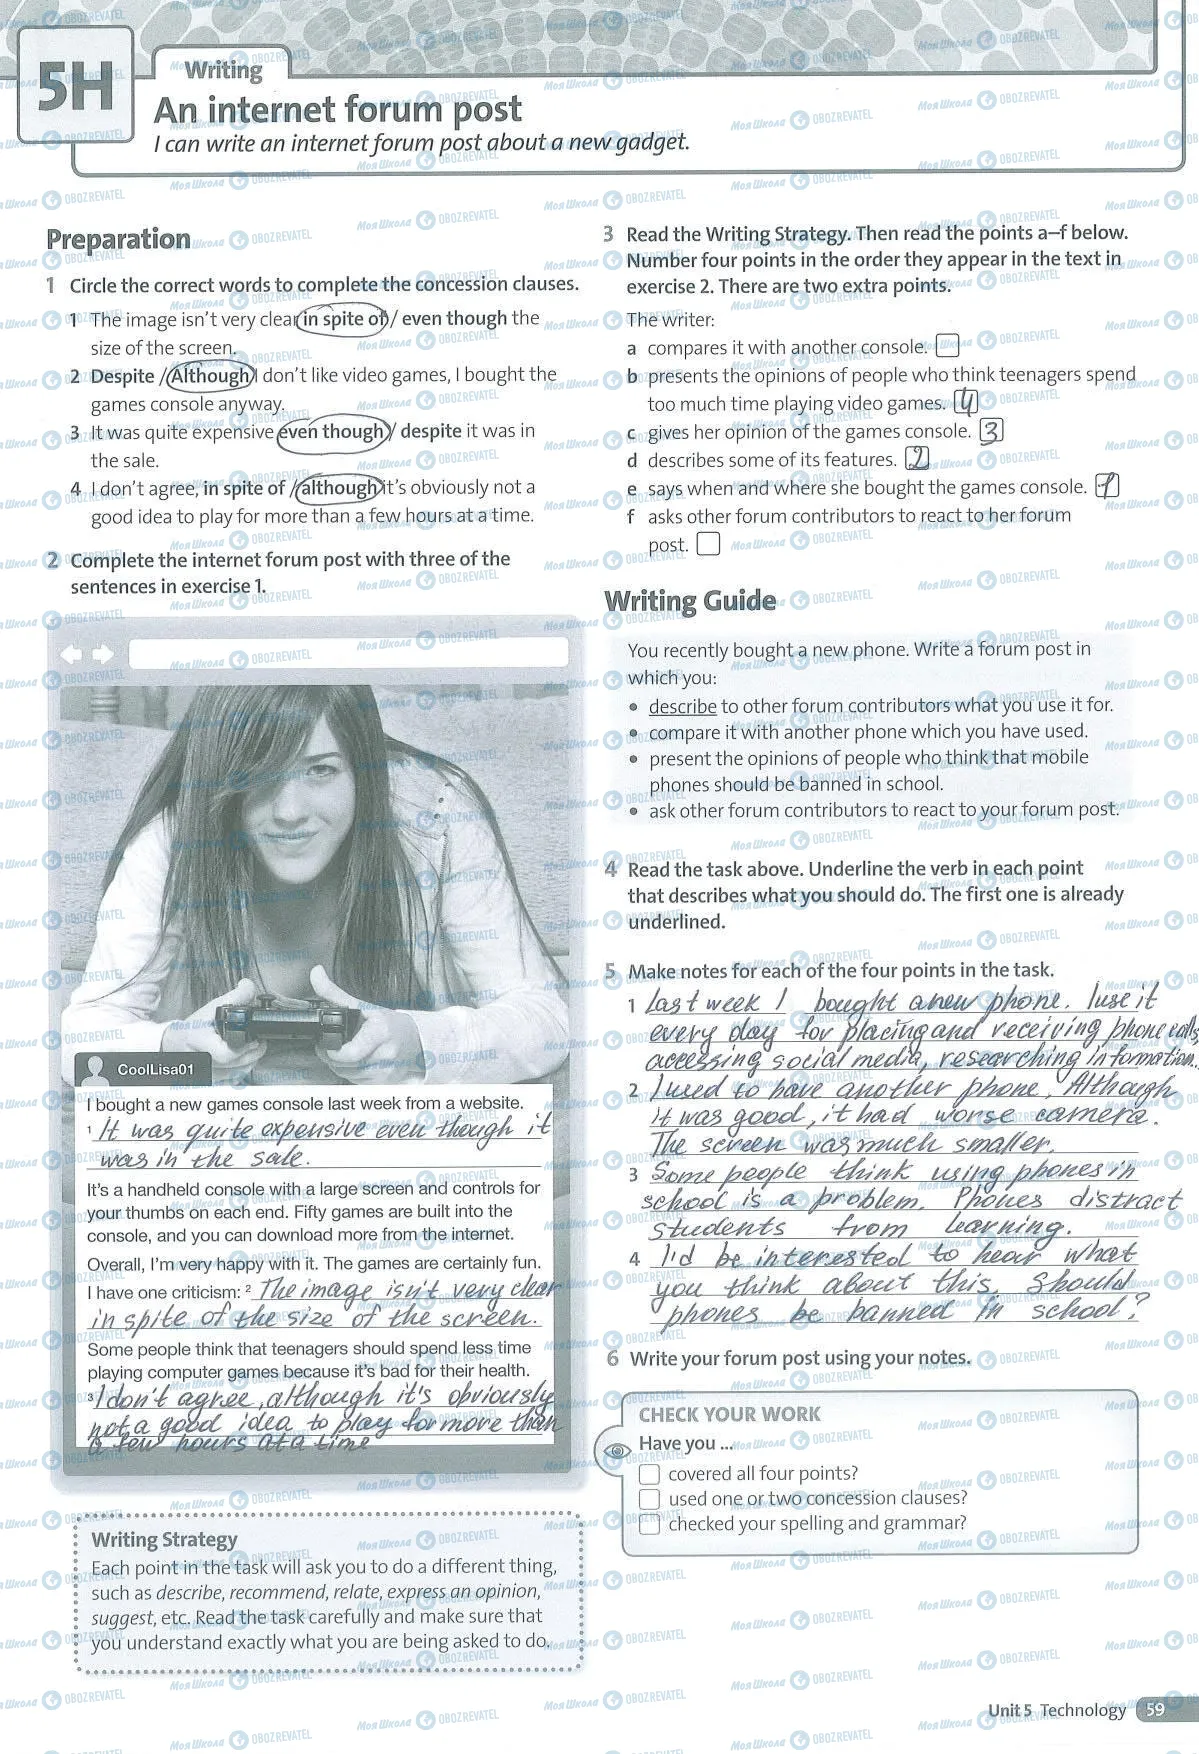 5H
Writing
An internet forum post
I can write an internet forum post about a new gadget.
Preparation
1 Circle the correct words to complete the concession clauses.
1 The image isn't very clear in spite of / even though the
size of the screen.
2 Despite / Although I don't like video games, I bought the
games console anyway.
3 It was quite expensive even though / despite it was in
the sale.
4 I don't agree, in spite of / although it's obviously not a
good idea to play for more than a few hours at a time.
2 Complete the internet forum post with three of the
sentences in exercise 1.
CoolLisa01
I bought a new games console last week from a website.
1 It was quite expensive even though it
was in the sale.
It's a handheld console with a large screen and controls for
your thumbs on each end. Fifty games are built into the
console, and you can download more from the internet.
Overall, I'm very happy with it. The games are certainly fun.
I have one criticism: 2 The image isn't very clear
in spite of the size of the screen.
Some people think that teenagers should spend less time
playing computer games because it's bad for their health.
3 I don't agree, although it's obviously
not a good idea to play for more than
a few hours at a time
Writing Strategy
Each point in the task will ask you to do a different thing,
such as describe, recommend, relate, express an opinion,
suggest, etc. Read the task carefully and make sure that
you understand exactly what you are being asked to do.
3 Read the Writing Strategy. Then read the points a–f below.
Number four points in the order they appear in the text in
exercise 2. There are two extra points.
The writer:
a compares it with another console.
b presents the opinions of people who think teenagers spend
too much time playing video games. 4
c gives her opinion of the games console. 3
d describes some of its features. 2
e says when and where she bought the games console. 1
f asks other forum contributors to react to her forum
post.
Writing Guide
You recently bought a new phone. Write a forum post in
which you:
• describe to other forum contributors what you use it for.
• compare it with another phone which you have used.
• present the opinions of people who think that mobile
phones should be banned in school.
• ask other forum contributors to react to your forum post.
4 Read the task above. Underline the verb in each point
that describes what you should do. The first one is already
underlined.
5 Make notes for each of the four points in the task.
1 Last week I bought a new phone. I use it
every day for placing and receiving phone calls,
accessing social media, researching information..
2 I used to have another phone. Although
it was good, it had worse camera.
The screen was much smaller.
3 Some people think using phones in
school is a problem. Phones distract
students from learning.
4 I'd be interested to hear what
you think about this. Should
phones be banned in school?
6 Write your forum post using your notes.
CHECK YOUR WORK
Have you ...
covered all four points?
used one or two concession clauses?
checked your spelling and grammar?
Unit 5 Technology 59
Моя Школа OBOZREVATEL